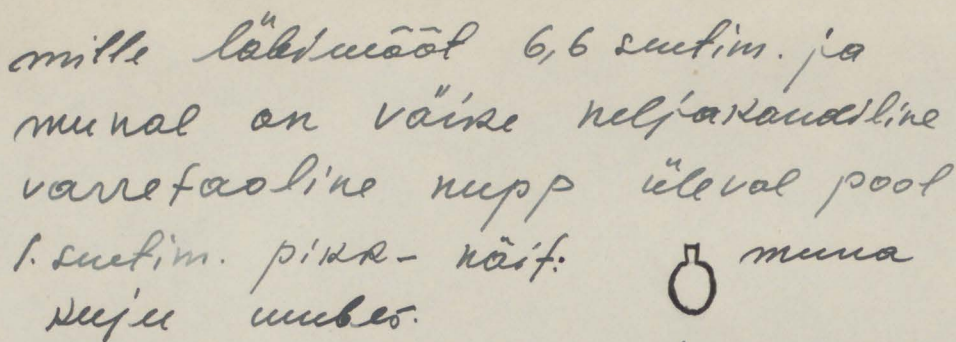 mille läbimõõt 6,6 sentim. ja
munal on väike neljakandiline
varretaoline nupp üleval pool
1. sentim. pikk- näit: muna
kuju umbes.